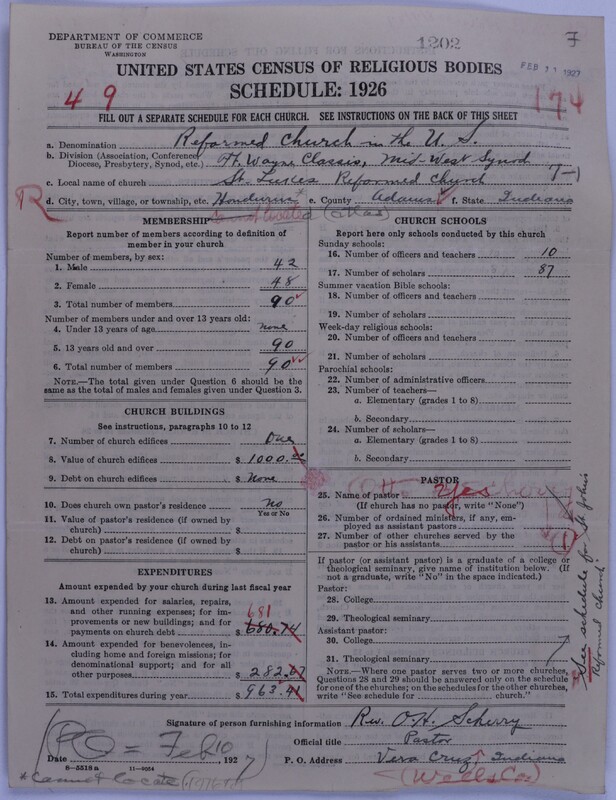 DEPARTMENT OF COMMERCE
BUREAU OF THE CENSUS
WASHINGTON
1202
7
FEB 11 1927
UNITED STATES CENSUS OF RELIGIOUS BODIES
SCHEDULE: 1926
4 9
174
FILL OUT A SEPARATE SCHEDULE FOR EACH CHURCH. SEE INSTRUCTIONS ON THE BACK OF THIS SHEET
a. Denomination Reformed Church in the U. S.
b. Division (Association, Conference, Diocese, Presbytery, Synod, etc.) Ft. Wayne Classis, Mid-West Synod
7-1
c. Local name of church St. Lukes Reformed Church
R
d. City, town, village, or township, etc. Honduras* e. County Adams f. State Indiana
MEMBERSHIP
Report number of members according to definition of
member in your church
Number of members, by sex:
1. Male 42
2. Female 48
3. Total number of members 90
Number of members under and over 13 years old:
4. Under 13 years of age none
5. 13 years old and over 90
6. Total number of members 90
NOTE.—The total given under Question 6 should be the
same as the total of males and females given under Question 3.
CHURCH BUILDINGS
See instructions, paragraphs 10 to 12
7. Number of church edifices One
8. Value of church edifices $ 1000.00
9. Debt on church edifices $ None
10. Does church own pastor's residence? No
Yes or No
11. Value of pastor's residence (if owned by
church) $
12. Debt on pastor's residence (if owned by
church) $
EXPENDITURES
Amount expended by your church during last fiscal year
13. Amount expended for salaries, repairs,
and other running expense; for im-
provements or new buildings; and for
payments on church debt $ 680.74
681
14. Amount expended for benevolences,
including home and foreign missions; for
denominational support; and for all
other purposes $ 282.67
15. Total expenditures during year $ 963.41
CHURCH SCHOOLS
Report here only schools conducted by this church
Sunday schools:
16. Number of officers and teachers 10
17. Number of scholars 87
Summer vacation Bible schools:
18. Number of officers and teachers
19. Number of scholars
Week-day religious schools:
20. Number of officers and teachers
21. Number of scholars
Parochial schools:
22. Number of administrative officers
23. Number of teachers—
a. Elementary (grades 1 to 8)
b. Secondary
24. Number of scholars—
a. Elementary (grades 1 to 8)
b. Secondary
PASTOR
25. Name of pastor yes
(If church has no pastor, write "None")
26. Number of ordained ministers, if any, em-
ployed as assistant pastors
27. Number of other churches served by the
pastor or his assistants 1
If pastor (or assistant pastor) is a graduate of a college or
theological seminary, give name of institution below. (If
not a graduate, write "No" in the space indicated.)
Pastor:
28. College
29. Theological seminary
Assistant pastor:
30. College
31. Theological seminary
NOTE.—Where one pastor serves two or more churches,
Questions 28 and 29 should be answered only on the schedule
for one of the churches; on the schedules for the other churches,
write "See schedule for church."
See schedule for St. John's
Reformed Church
Signature of person furnishing information Rev. O. H. Scherry
Official title Pastor
Date Feb 10, 1927
P. O. Address Vera Cruz, Indiana
(Wells Co.)
8—5518 a
*Cannot locate